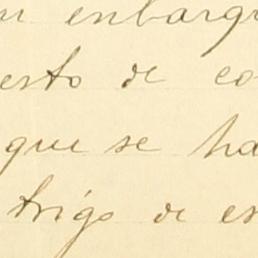 embarg
esto de co
que se ha
trigo de es